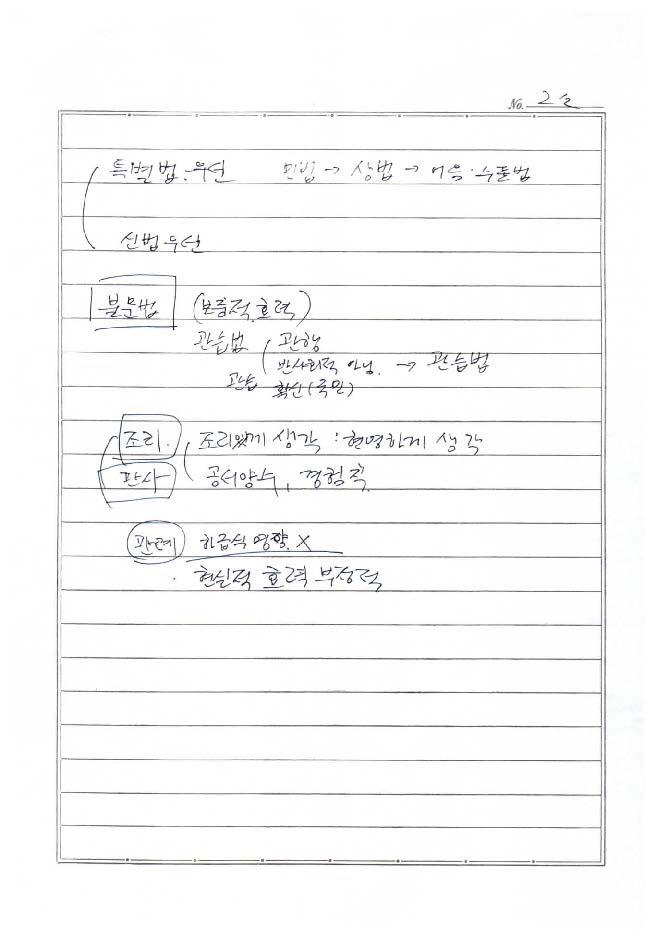 No. 2
특별법 우선 민법 → 상법 → 어음·수표법
신법우선
불문법 (보충적 효력)
관습법 관행
반사회적 아님. → 관습법
관습 확신(국민)
조리. 조리있게 생각 : 현명하게 생각
판사 공서양속, 경험칙
판례 하급심 영향 X
· 현실적 효력 부정적